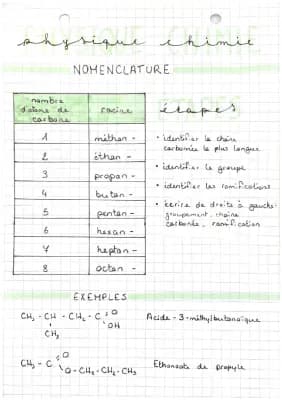 physique chimie
NOMENCLATURE
nombre d'atome de carbone
racine
1 méthan -
2 éthan -
3 propan -
4 butan -
5 pentan -
6 hexan -
7 heptan -
8 octan -
étapes
• identifier la chaîne
carbonée la plus longue
• identifier le groupe
• identifier les ramifications
• écrire de droite à gauche
groupement, chaîne
carbonée, ramification
EXEMPLES
CH₃ - CH - CH₂ - C O OH
CH₃
Acide - 3 - méthylbutanoïque
CH₃ - C O O - CH₂ - CH₂ - CH₃
Ethanoate de propyle